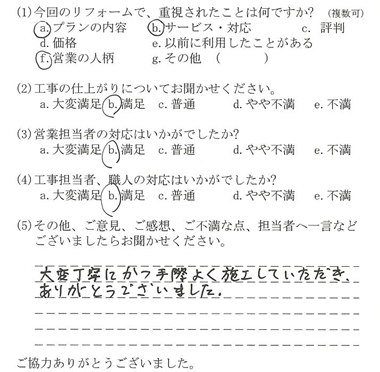 (1)今回のリフォームで、重視されたことは何ですか? (複数可)
a.プランの内容 b.サービス・対応 c. 評判
d.価格 e.以前に利用したことがある
f.営業の人柄 g.その他 ( )
(2)工事の仕上がりについてお聞かせください。
a.大変満足 b.満足 c.普通 d.やや不満 e.不満
(3)営業担当者の対応はいかがでしたか?
a.大変満足 b.満足 c.普通 d.やや不満 e.不満
(4)工事担当者、職人の対応はいかがでしたか?
a.大変満足 b.満足 c.普通 d.やや不満 e.不満
(5)その他、ご意見、ご感想、ご不満な点、担当者へ一言など
ございましたらお聞かせください。
大変丁寧にかつ手際よく施工していただき、
ありがとうございました。
ご協力ありがとうございました。